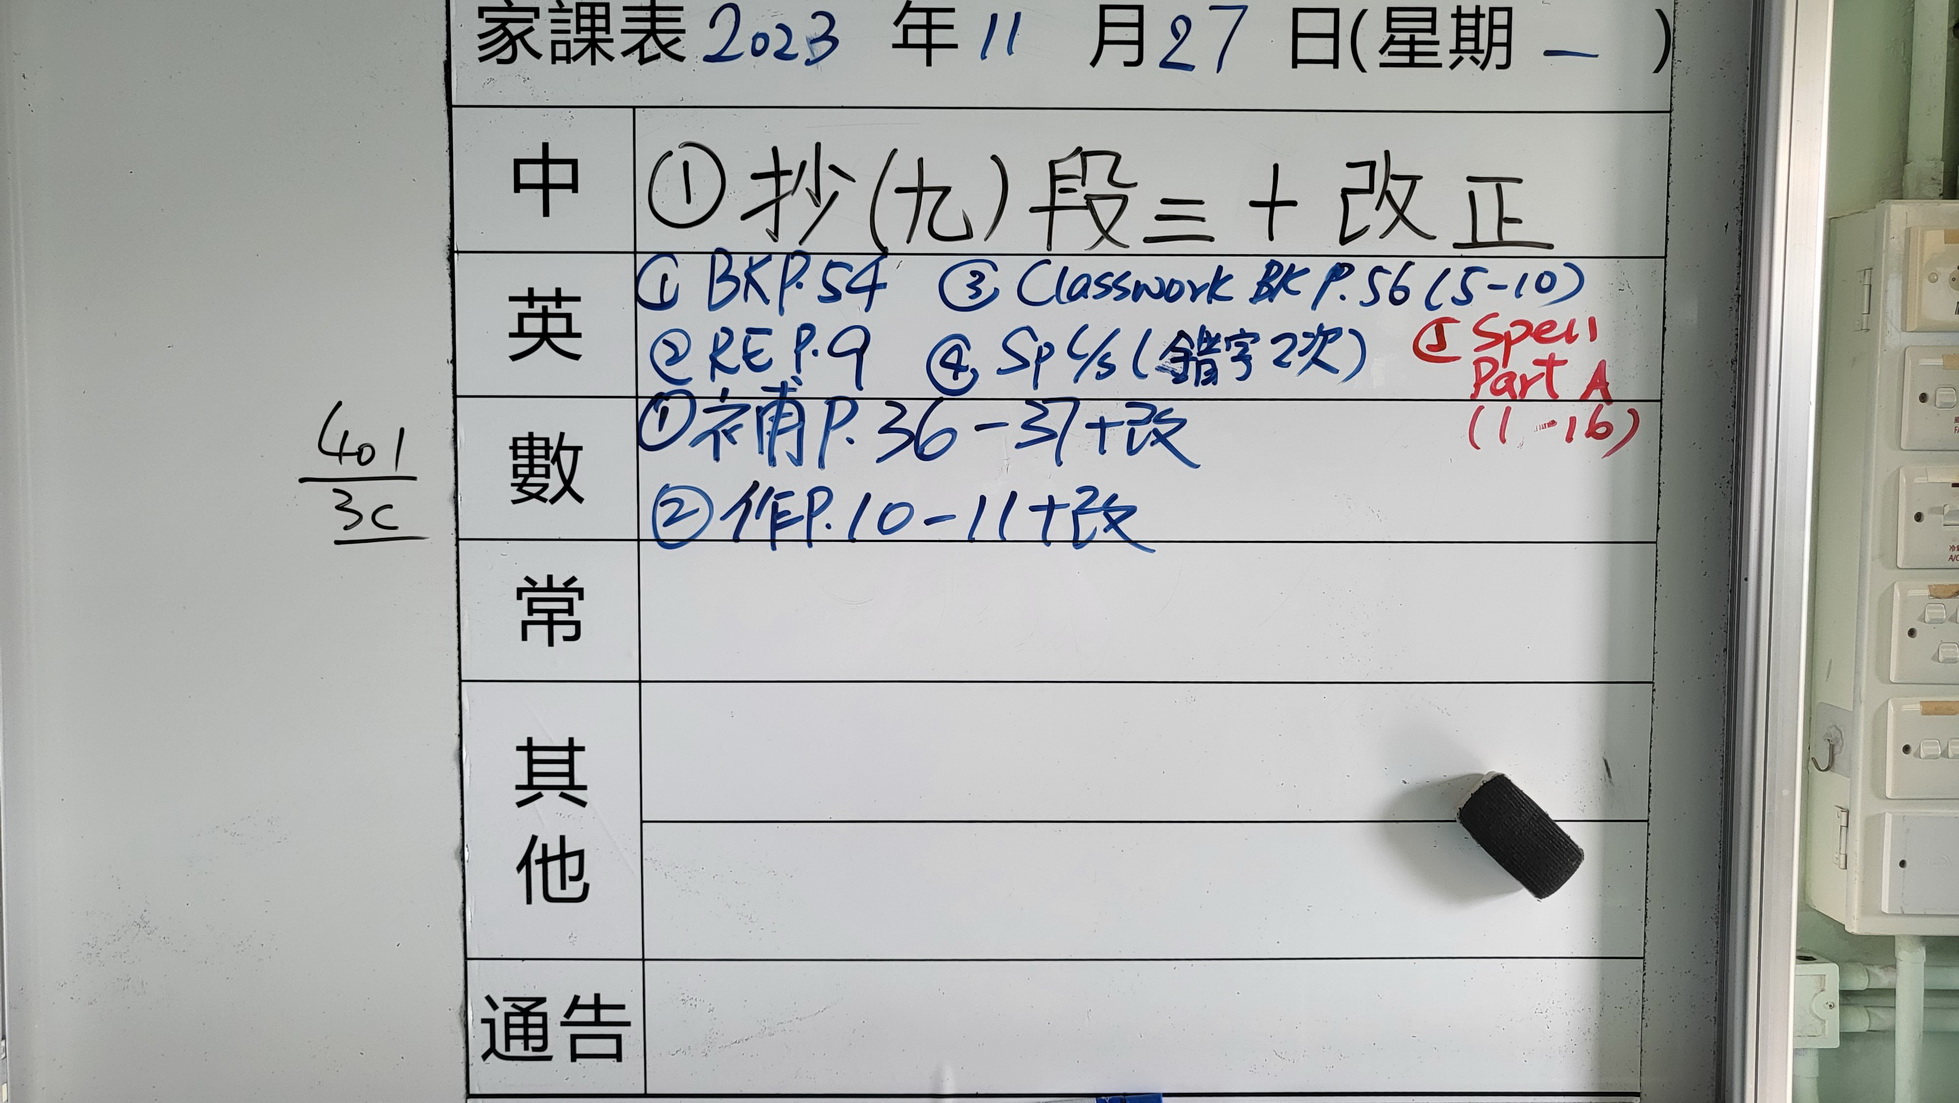 家課表 2023 年 11 月 27 日(星期 一 )
中 ① 抄(九)段三 + 改正
英 ① BK P.54 ③ Classwork BK P.56 (5-10)
② RE P.9 ④ Sp C/s (錯字2次) ⑤ Spell
Part A
(1-16)
數 ① 補 P.36-37+改
② 作 P.10-11+改
401
3C
常
其他
通告